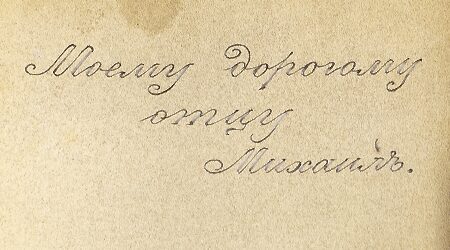 Моему дорогому
отцу
Михаилъ.